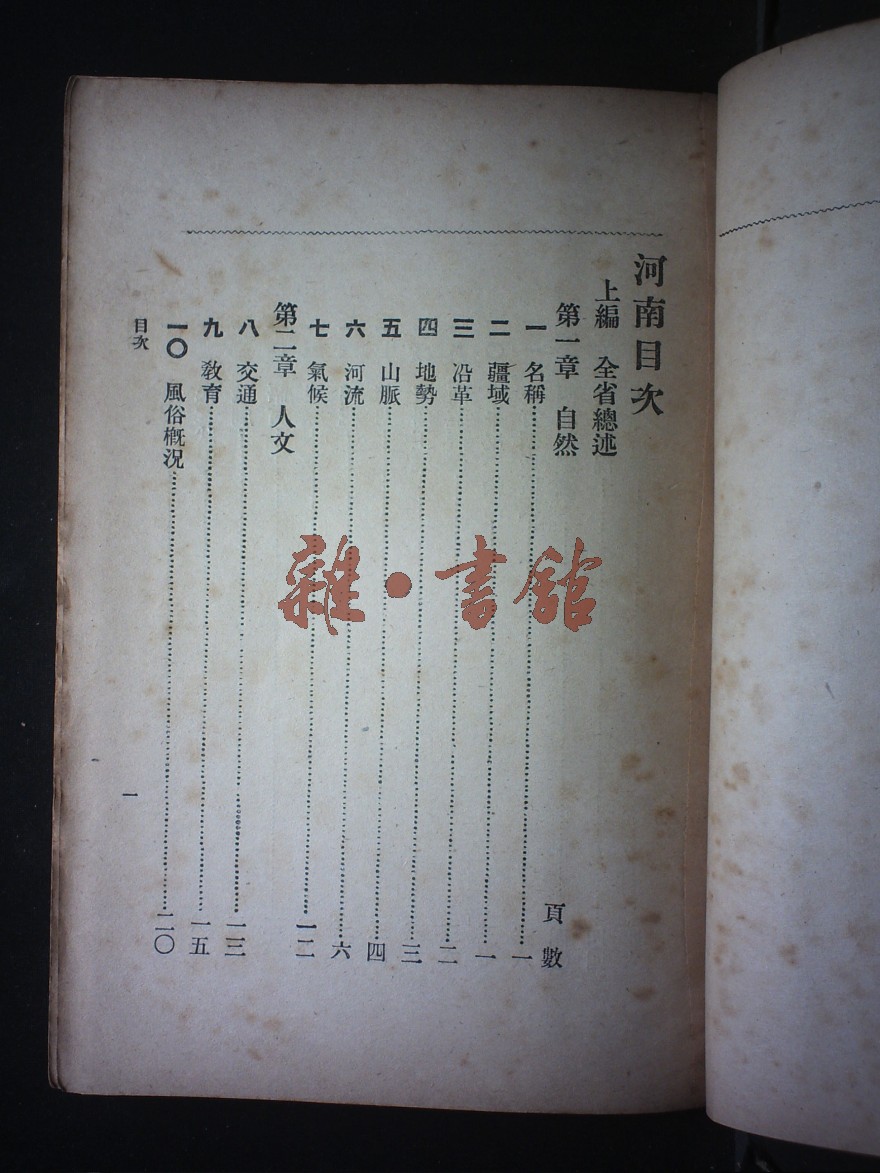 河南目次
上編　全省總述
第一章　自然
頁數
一　名稱……一
二　疆域……一
三　沿革……二
四　地勢……三
五　山脈……四
六　河流……六
七　氣候……一二
第二章　人文
八　交通……一三
九　教育……一五
一〇　風俗概況……二〇
目次
一
雜・書館